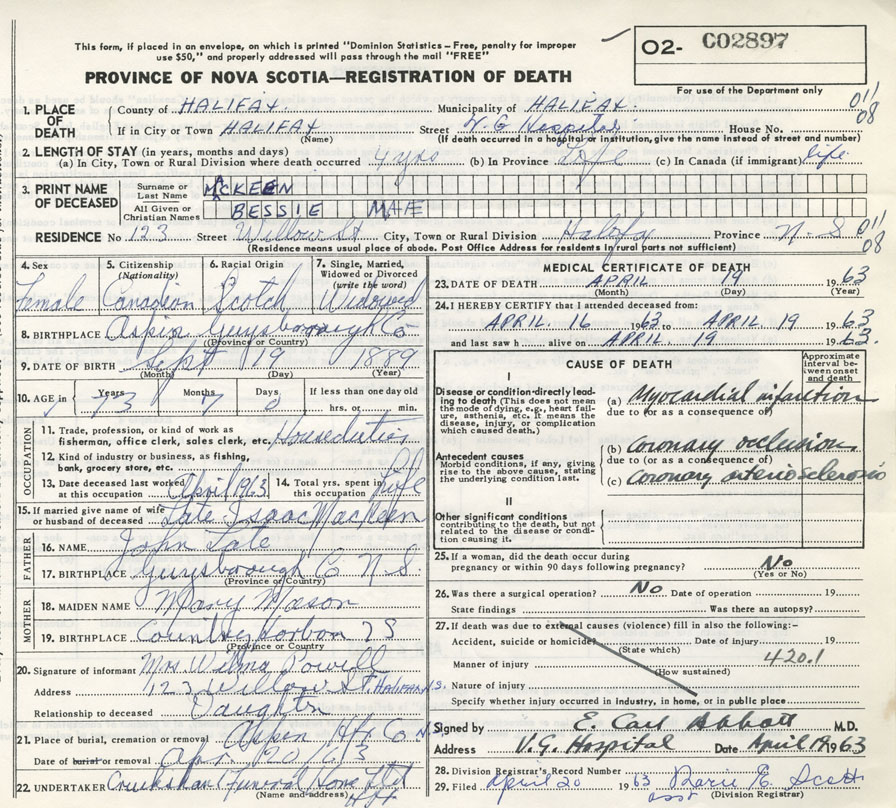 This form, if placed in an envelope, on which is printed "Dominion Statistics—Free, penalty for improper
use $50," and properly addressed will pass through the mail "FREE"
O2- C02897
PROVINCE OF NOVA SCOTIA—REGISTRATION OF DEATH
For use of the Department only
1. PLACE OF DEATH
County of HALIFAX. Municipality of HALIFAX. 011
If in City or Town HALIFAX Street V.G Hospital House No. 08
(Name) (If death occurred in a hospital or institution, give the name instead of street and number)
2. LENGTH OF STAY (in years, months and days)
(a) In City, Town or Rural Division where death occurred 4 yrs (b) In Province Life (c) In Canada (if immigrant) life
3. PRINT NAME OF DECEASED
Surname or Last Name MCKEEN
All Given or Christian Names BESSIE MAE
RESIDENCE No 123 Street Willow St City, Town or Rural Division Halifx Province N-S 011
08
(Residence means usual place of abode. Post Office Address for residents in rural parts not sufficient)
4. Sex Female
5. Citizenship (Nationality) Canadian
6. Racial Origin Scotch
7. Single, Married, Widowed or Divorced (write the word) Widowed
8. BIRTHPLACE Aspin Guysborough Co
(Province or Country)
9. DATE OF BIRTH Sept 19 1889
(Month) (Day) (Year)
10. AGE in Years 73 Months 7 Days 0 If less than one day old hrs. or min.
OCCUPATION
11. Trade, profession, or kind of work as fisherman, office clerk, sales clerk, etc. Houseduties
12. Kind of industry or business, as fishing, bank, grocery store, etc.
13. Date deceased last worked at this occupation April 1963 14. Total yrs. spent in this occupation life
15. If married give name of wife or husband of deceased Late Isaac MacKeen
FATHER
16. NAME John Tate
17. BIRTHPLACE Guysborough Co N S
(Province or Country)
MOTHER
18. MAIDEN NAME Mary Mason
19. BIRTHPLACE Country Harbor NS
(Province or Country)
20. Signature of informant Mrs Wilma Powell
Address 123 Willow St. Halifax N.S.
Relationship to deceased Daughter
21. Place of burial, cremation or removal Aspen Co N.
Date of burial or removal Apr 20 63
22. UNDERTAKER Cruikshank Funeral Home Ltd
(Name and address)
MEDICAL CERTIFICATE OF DEATH
23. DATE OF DEATH APRIL 19 1963
(Month) (Day) (Year)
24. I HEREBY CERTIFY that I attended deceased from:
APRIL. 16 1963 to APRIL. 19 1963
and last saw h alive on APRIL. 19 1963.
CAUSE OF DEATH
Approximate interval between onset and death
I
Disease or condition directly leading to death (This does not mean the mode of dying, e.g., heart failure, asthenia, etc. It means the disease, injury, or complication which caused death.)
(a) Myocardial infarction
due to (or as a consequence of)
Antecedent causes
Morbid conditions, if any, giving rise to the above cause, stating the underlying condition last.
(b) Coronary occlusion
due to (or as a consequence of)
(c) Coronary arteriosclerosis
II
Other significant conditions contributing to the death, but not related to the disease or condition causing it.
25. If a woman, did the death occur during pregnancy or within 90 days following pregnancy? No
(Yes or No)
26. Was there a surgical operation? NO Date of operation 19
State findings Was there an autopsy?
27. If death was due to external causes (violence) fill in also the following:-
Accident, suicide or homicide? Date of injury 19
(State which)
Manner of injury 420.1
(How sustained)
Nature of injury
Specify whether injury occurred in industry, in home, or in public place.
Signed by E. Carl Abbott M.D.
Address V.G. Hospital Date April 19 1963
28. Division Registrar's Record Number
29. Filed April 20 1963 E. Scott
asst (Division Registrar)